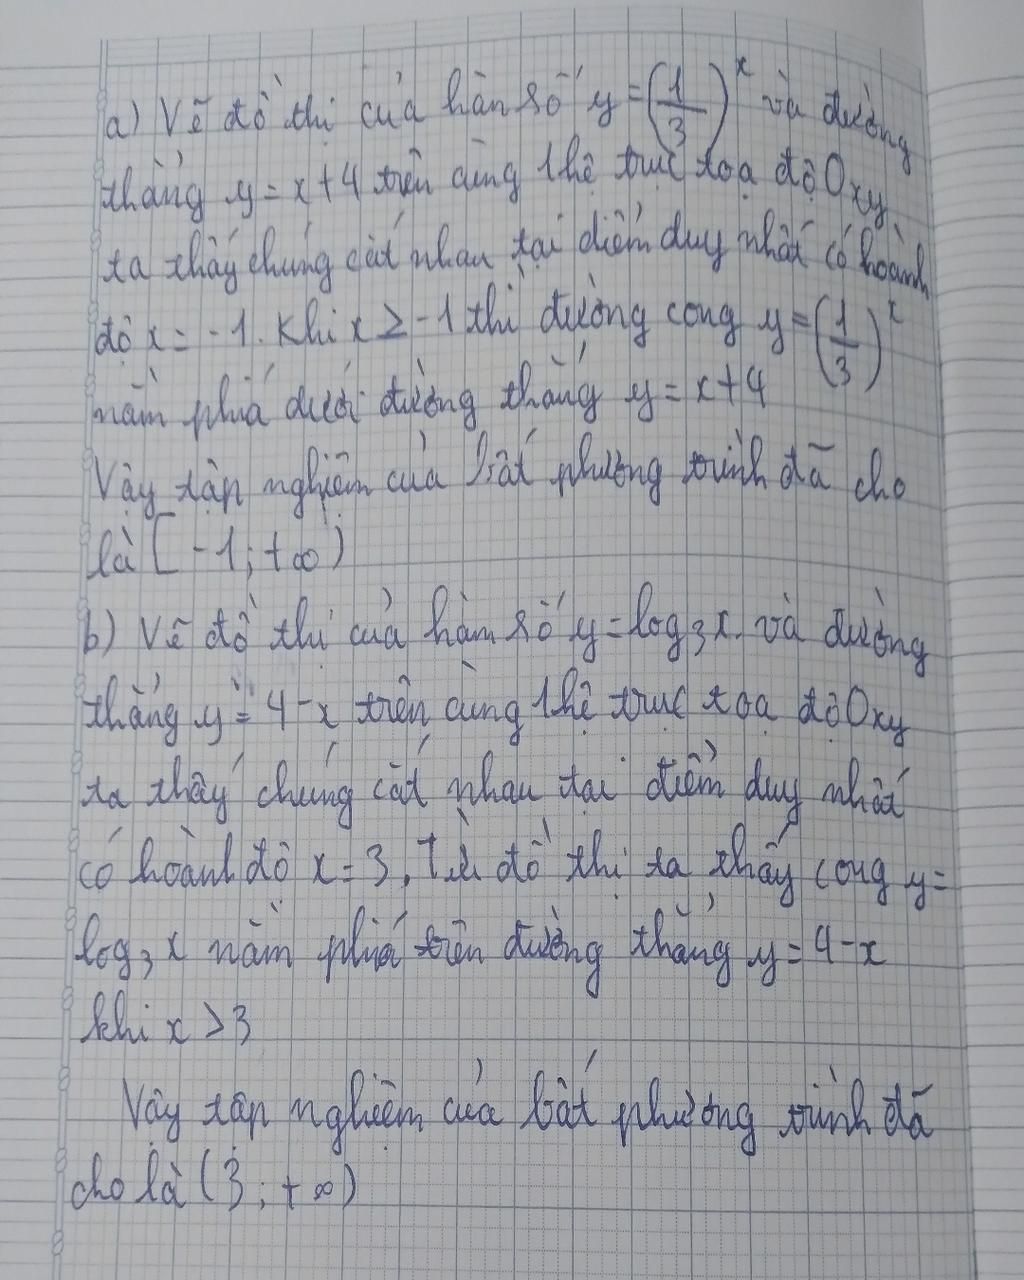 a) Vẽ đồ thị của hàn số y = (1/3)^x và đường
thẳng y = x + 4 trên cùng 1 hệ trục toạ độ Oxy
ta thấy chúng cắt nhau tại điểm duy nhất có hoành
độ x = -1. Khi x ≥ -1 thì đường cong y = (1/3)^x
nằm phía dưới đường thẳng y = x + 4
Vậy tập nghiệm của bất phương trình đã cho
là [-1; +∞)
b) Vẽ đồ thị của hàm số y = log₃x và đường
thẳng y = 4 - x trên cùng 1 hệ trục toạ độ Oxy
ta thấy chúng cắt nhau tại điểm duy nhất
có hoành độ x = 3, Từ đồ thị ta thấy cong y =
log₃x nằm phía trên đường thẳng y = 4 - x
khi x > 3
Vậy tập nghiệm của bất phương trình đã
cho là (3; +∞)